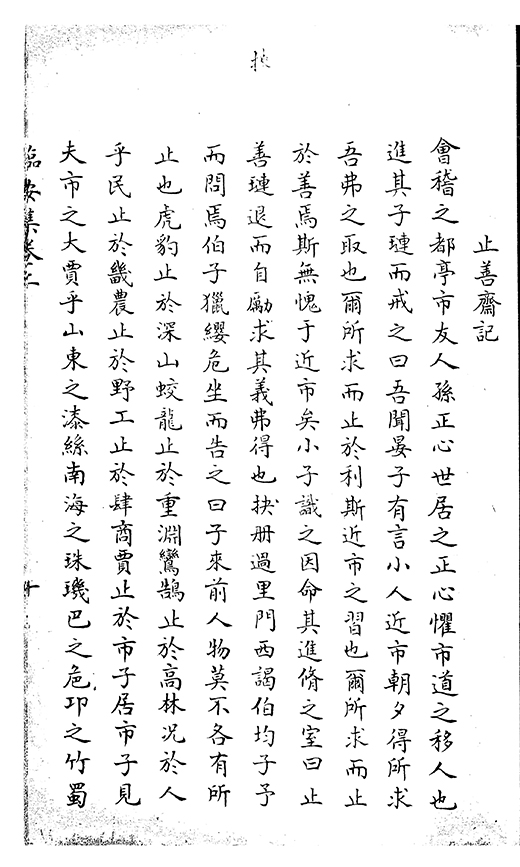 止善齋記
會稽之都亭市友人孫正心世居之正心懼市道之移人也
進其子璉而戒之曰吾聞晏子有言小人近市朝夕得所求
吾弗之取也爾所求而止於利斯近市之習也爾所求而止
於善焉斯無愧于近市矣小子識之因命其進脩之室曰止
善璉退而自勵求其義弗得也抉册過里門西謁伯均子予
而問焉伯子獵纓危坐而告之曰子來前人物莫不各有所
止也虎豹止於深山蛟龍止於重淵鸞鵠止於高林况於人
乎民止於畿農止於野工止於肆商賈止於市子居市子見
夫市之大賈乎山東之漆絲南海之珠璣巴之危卭之竹蜀
臨安集卷三